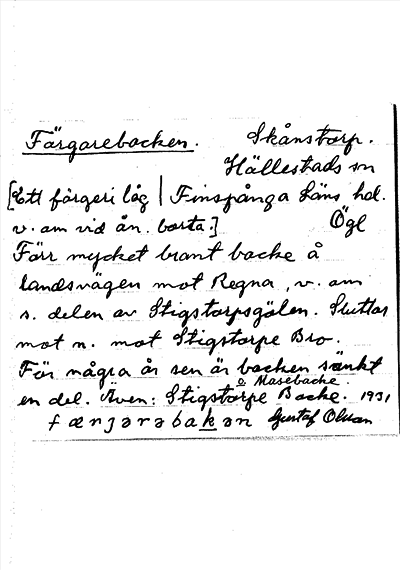 Färgarebacken. Skånstorp.
Hällestads sn
[Ett färgeri låg | Finspånga Läns hd.
v. om vid ån. borta.] Ögl
Förr mycket brant backe å
landsvägen mot Regna, v. om
s. delen av Stigstorpsgölen. Sluttar
mot n. mot Stigstorpe Bro.
För några år sen är backen sänkt
å Masebacke.
en del. Även: Stigstorpe Backe. 1931
færjarabakən Gustaf Olson